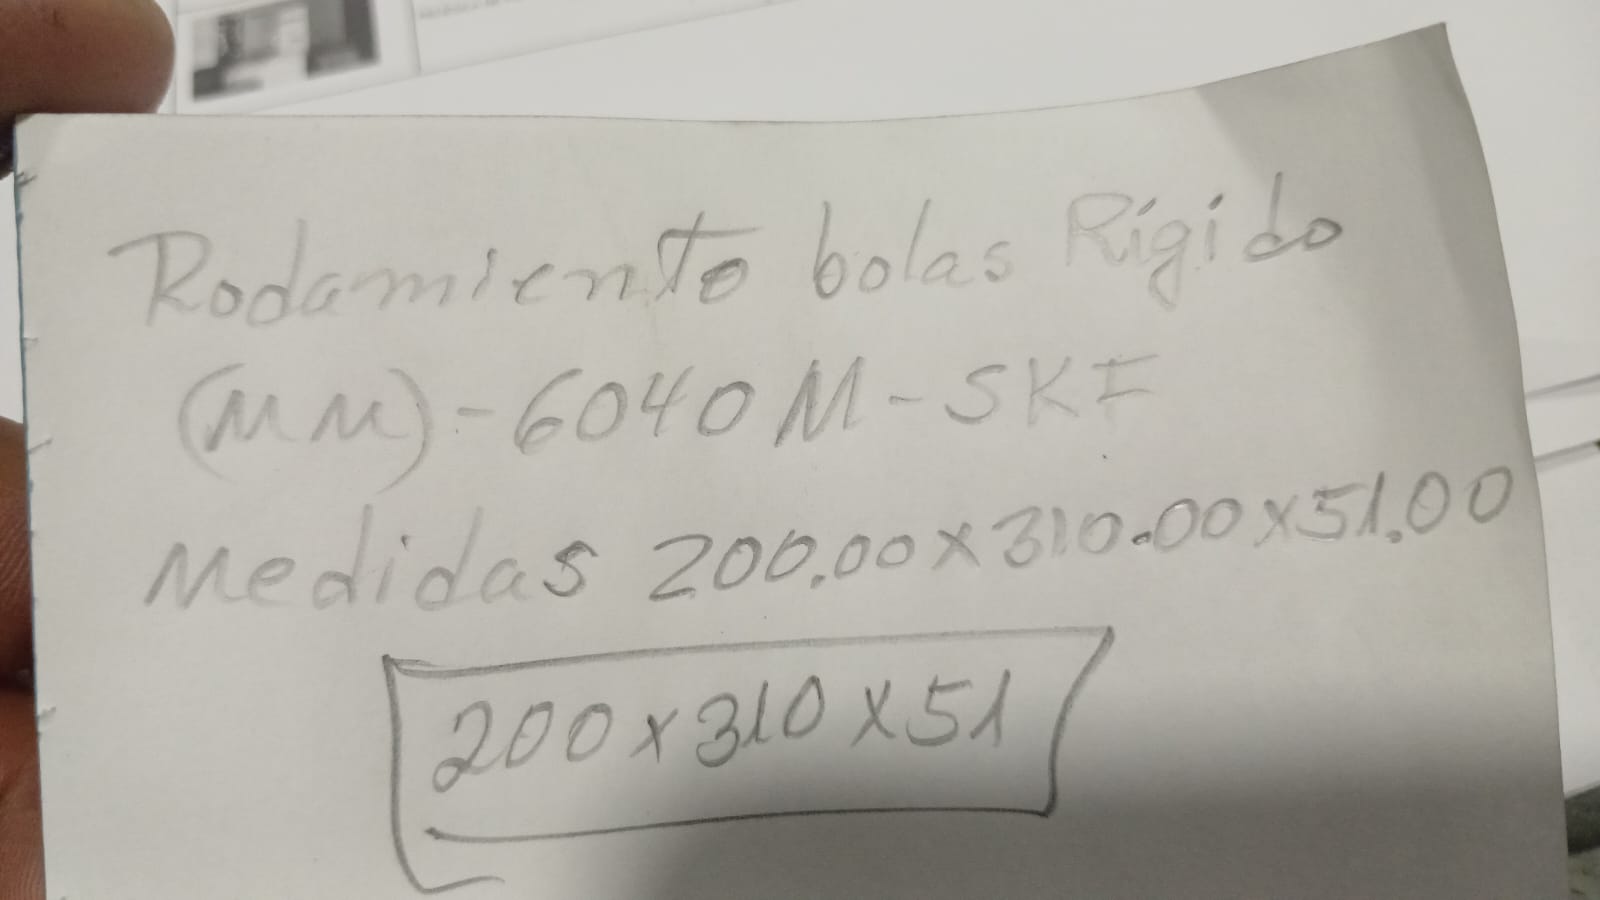 Rodamiento bolas Rígido
(MM)-6040 M-SKF
Medidas 200.00x310.00x51.00
200x310x51